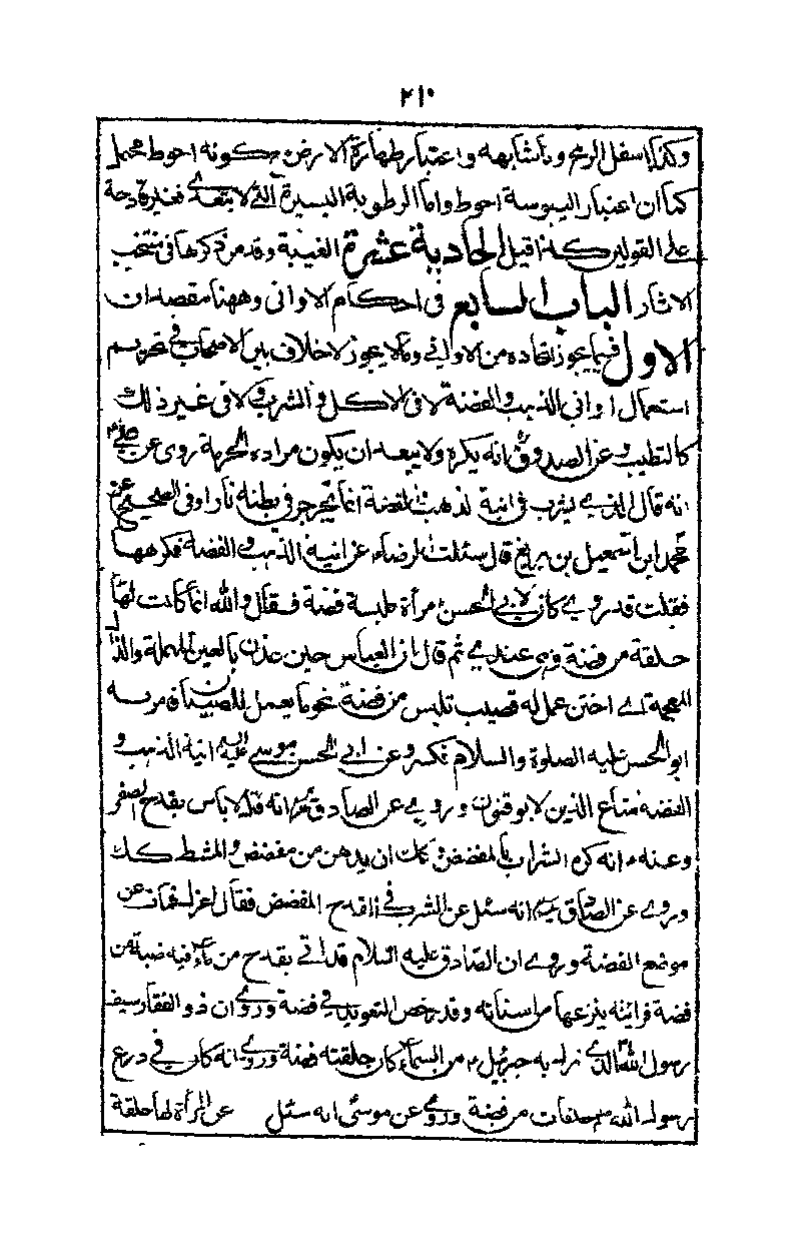 ٢١٠
وكذا اسفل الرمح وما شابهه واعتبار طهارة الارض مع كونه احوط محتمل
كما ان اعتبار اليبوسة احوط واما الرطوبة اليسيرة التي لا يتعدى فغير قادحة
على القولين كذا قيل الحادية عشرة الغيبة وقد مر ذكرها في منتخب
الاثار الباب السابع في احكام الاوانى وههنا مقصدان
الاول فيما يجوز اتخاذه من الاواني وما لا يجوز لا خلاف بين الاصحاب في تحريم
استعمال اوانى الذهب والفضة لا في الاكل والشرب ولا فى غير ذلك
كالتطيب وعن الصدوق انه يكره ولا يبعد ان يكون مراده الحرمة روى عن
انه قال الذي يشرب في انية الذهب والفضة انما يجرجر في بطنه نارا وفى الصحيح عن
محمد ابن اسمعيل بن بزيع قال سئلت الرضا عن انية الذهب والفضة فكرهها
فقلت قد روى كان لابي الحسن مرأة ملبسة فضة فقال والله انما كانت لها
حلقة من فضة وهى عندى ثم قال ان العباس حين عذر بالعين المهملة والذال
المعجمة اى اختن عمل له قضيب تلبس من فضة نحو ما يعمل للصبيان فامر به
ابو الحسن عليه الصلوة والسلام فكسر وعن ابي الحسن موسى عليه السلام انية الذهب و
الفضة متاع الذين لا يوقنون وروى عن الصادق انه قال لا باس بقدح الصفر
وعنه انه كره الشراب بالمفضض وكان ان يدهن من مفضض والمشط كك
وروى عن الصادق انه سئل عن الشرب في القدح المفضض فقال اعزل فمك عن
موضع الفضة وروى ان الصادق عليه السلام قد اتى بقدح من ماء فيه ضبة من
فضة فرائيته ينزعها من اسنانه وقد رخص التعويذ في فضة وروى ان ذو الفقار سيف
رسول الله الذى نزل به جبرئيل من السماء كان حلقته فضة وروى انه كان في درع
رسول الله حلقات من فضة وروى عن موسى انه سئل عن المرأة لها حلقة